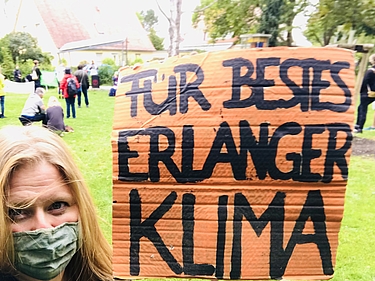 FÜR BESTES
ERLANGER
KLIMA